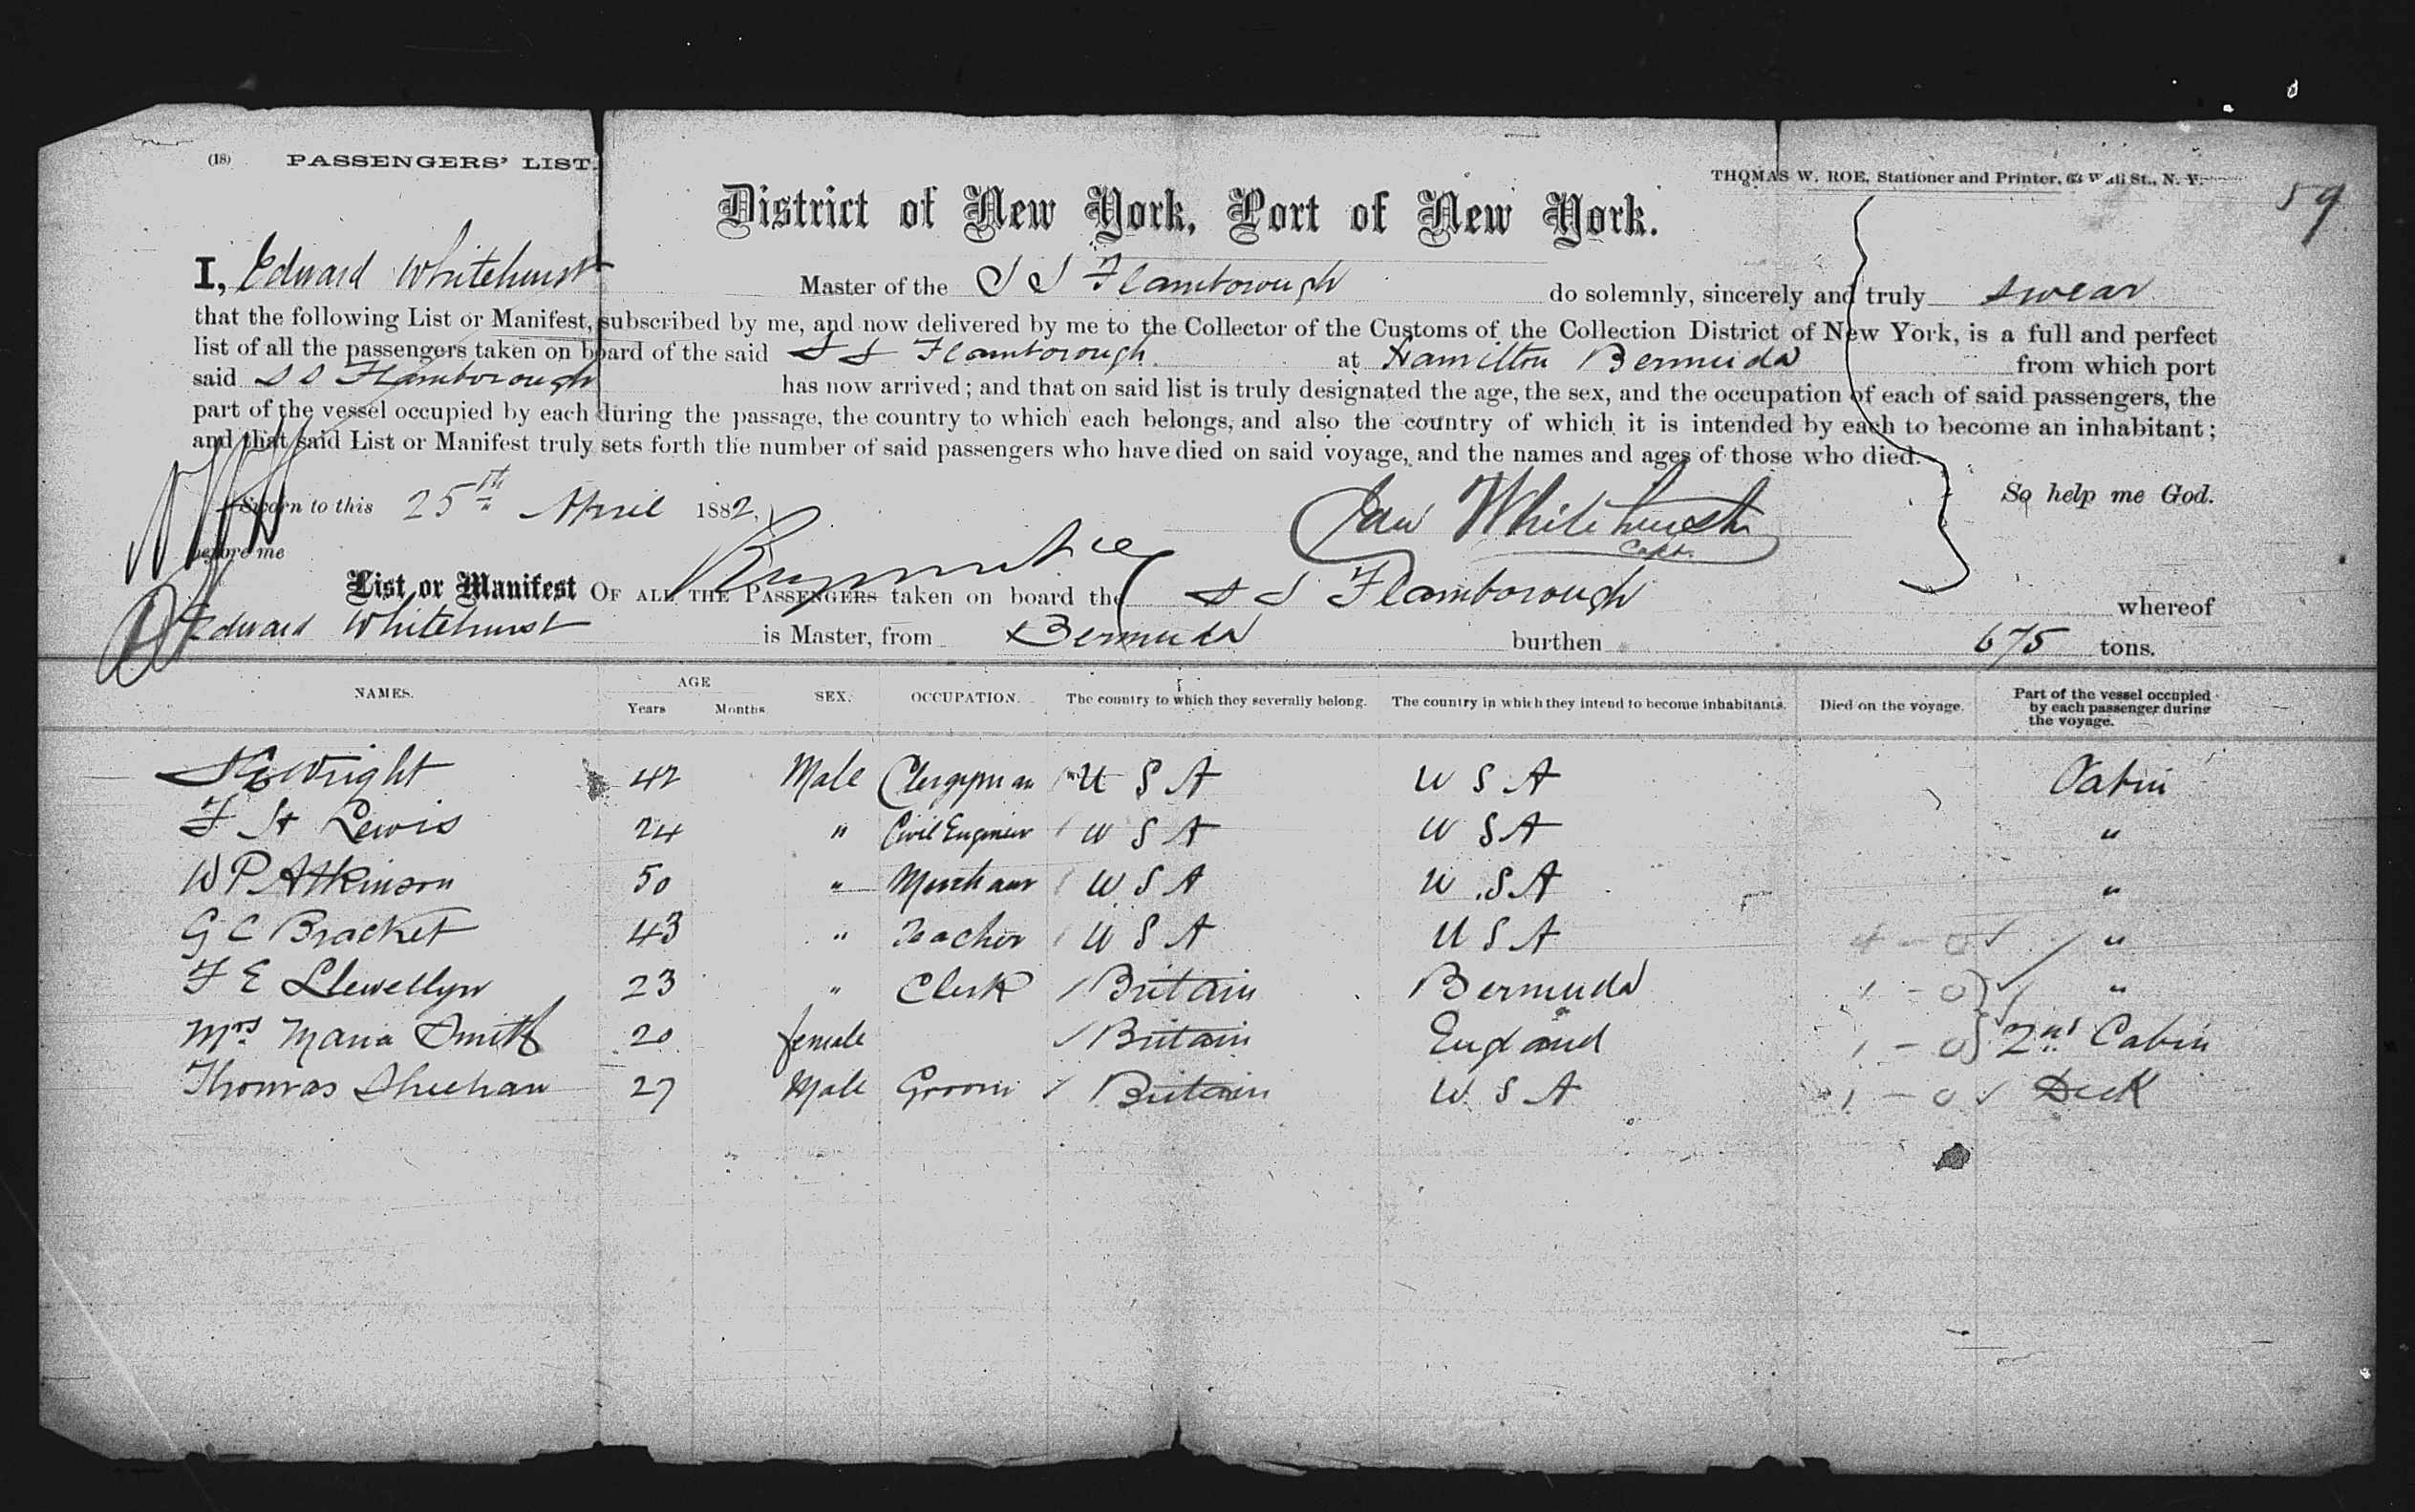 (18) PASSENGERS' LIST.
THOMAS W. ROE, Stationer and Printer, 63 Wall St., N. Y.
59
District of New York, Port of New York.
I, Edward Whitehurst Master of the S S Flamborough do solemnly, sincerely and truly swear
that the following List or Manifest, subscribed by me, and now delivered by me to the Collector of the Customs of the Collection District of New York, is a full and perfect
list of all the passengers taken on board of the said S S Flamborough at Hamilton Bermuda from which port
said S S Flamborough has now arrived; and that on said list is truly designated the age, the sex, and the occupation of each of said passengers, the
part of the vessel occupied by each during the passage, the country to which each belongs, and also the country of which it is intended by each to become an inhabitant;
and that said List or Manifest truly sets forth the number of said passengers who have died on said voyage, and the names and ages of those who died.
Sworn to this 25th April 1882. Whitehurst So help me God.
before me Capt.
List or Manifest OF ALL THE PASSENGERS taken on board the S S Flamborough whereof
Edward Whitehurst is Master, from Bermuda burthen 675 tons.
NAMES. AGE Years Months SEX. OCCUPATION. The country to which they severally belong. The country in which they intend to become inhabitants. Died on the voyage. Part of the vessel occupied by each passenger during the voyage.
Wright 42 Male Clergyman U S A U S A Cabin
F St Lewis 24 " Civil Engineer U S A U S A "
W P Atkinson 50 " Merchant U S A U S A "
G C Bracket 43 " Teacher U S A U S A 4 - 0 "
F E Llewellyn 23 " Clerk Britain Bermuda 1 - 0 "
Mrs Maria Smith 20 female Britain England 1 - 0 2nd Cabin
Thomas Sheehan 27 Male Groom Britain U S A 1 - 0 Deck